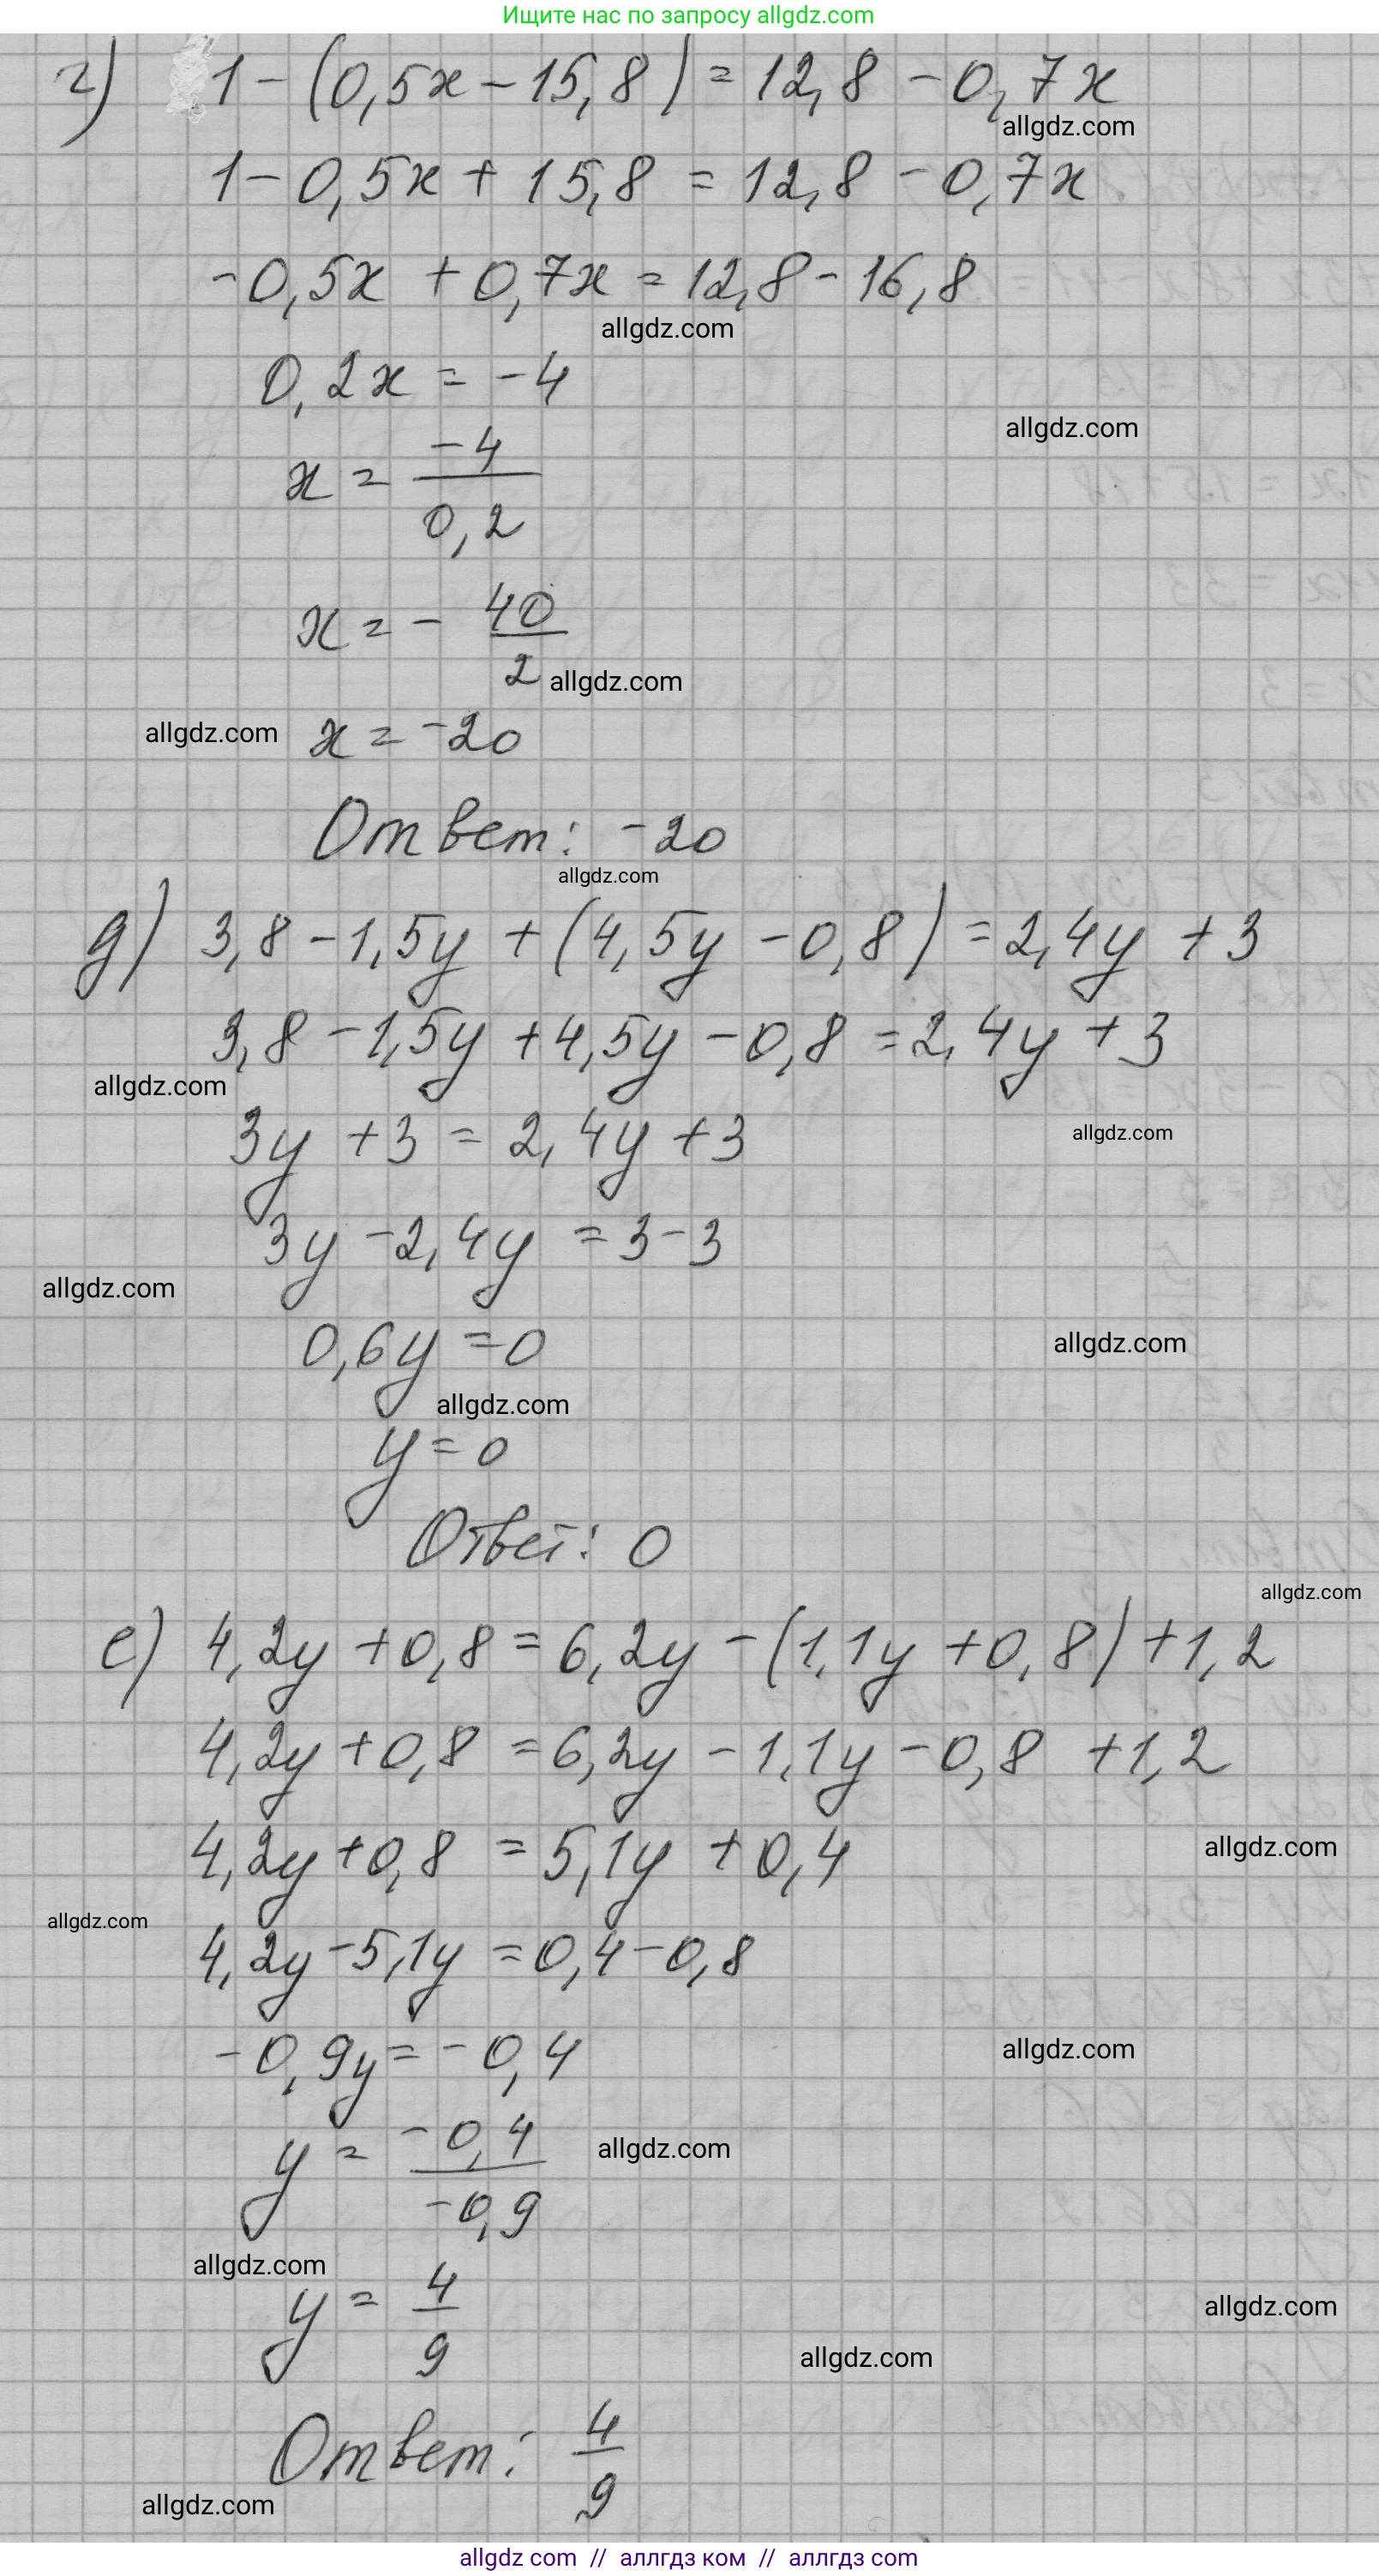 Ищите нас по запросу allgdz.com
г) 1-(0,5x-15,8)=12,8-0,7x
allgdz.com
1-0,5x+15,8=12,8-0,7x
-0,5x+0,7x=12,8-16,8
allgdz.com
0,2x=-4
allgdz.com
x=-4/0,2
x=-40/2
allgdz.com
allgdz.com
x=-20
Ответ: -20
allgdz.com
д) 3,8-1,5y+(4,5y-0,8)=2,4y+3
3,8-1,5y+4,5y-0,8=2,4y+3
allgdz.com
3y+3=2,4y+3
allgdz.com
3y-2,4y=3-3
allgdz.com
0,6y=0
allgdz.com
allgdz.com
y=0
Ответ: 0
allgdz.com
е) 4,2y+0,8=6,2y-(1,1y+0,8)+1,2
4,2y+0,8=6,2y-1,1y-0,8+1,2
4,2y+0,8=5,1y+0,4
allgdz.com
allgdz.com
4,2y-5,1y=0,4-0,8
-0,9y=-0,4
allgdz.com
y=-0,4/-0,9
allgdz.com
allgdz.com
y=4/9
allgdz.com
allgdz.com
Ответ: 4/9
allgdz.com
allgdz com // аллгдз ком // аллгдз com